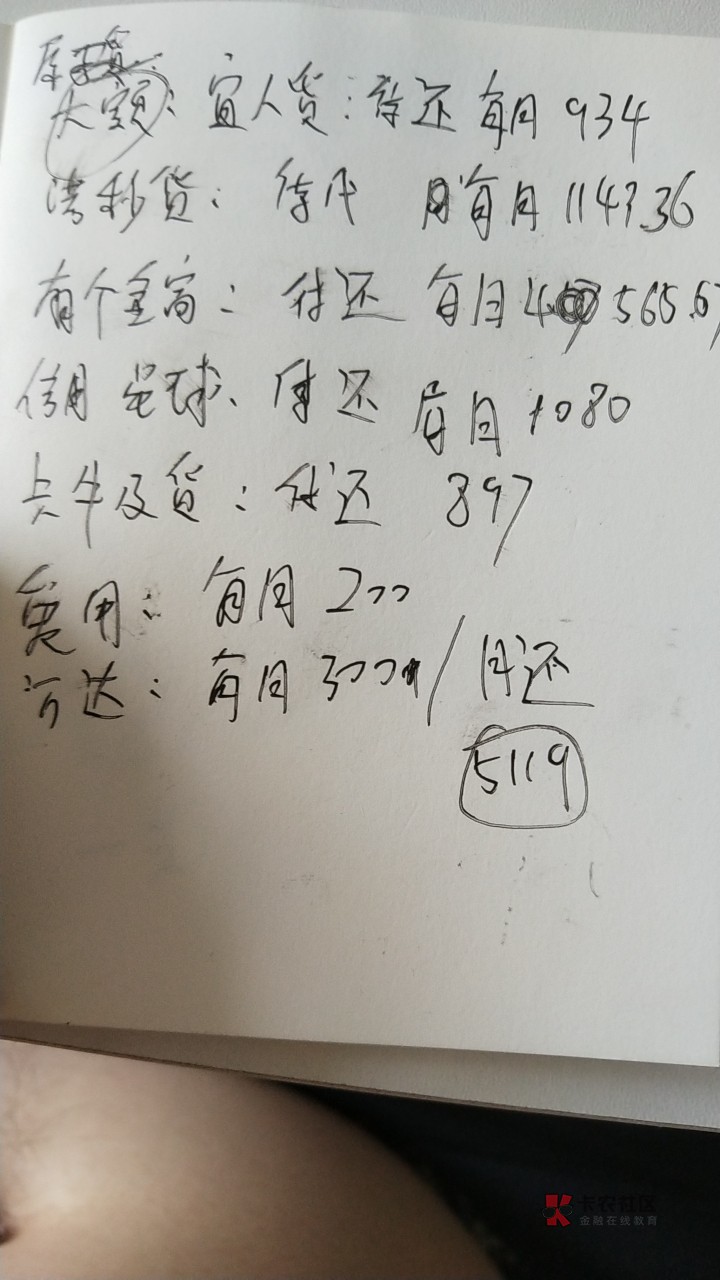 大额: 宜人贷: 待还 每月 934
秒贷: 待 每月 1143.36
有个金窝: 待还 每月 565.67
信用星球、待还 每月 1080
卡牛及贷: 待还 897
每月 200
每月 300 / 月还
5119
卡农社区
金融在线教育